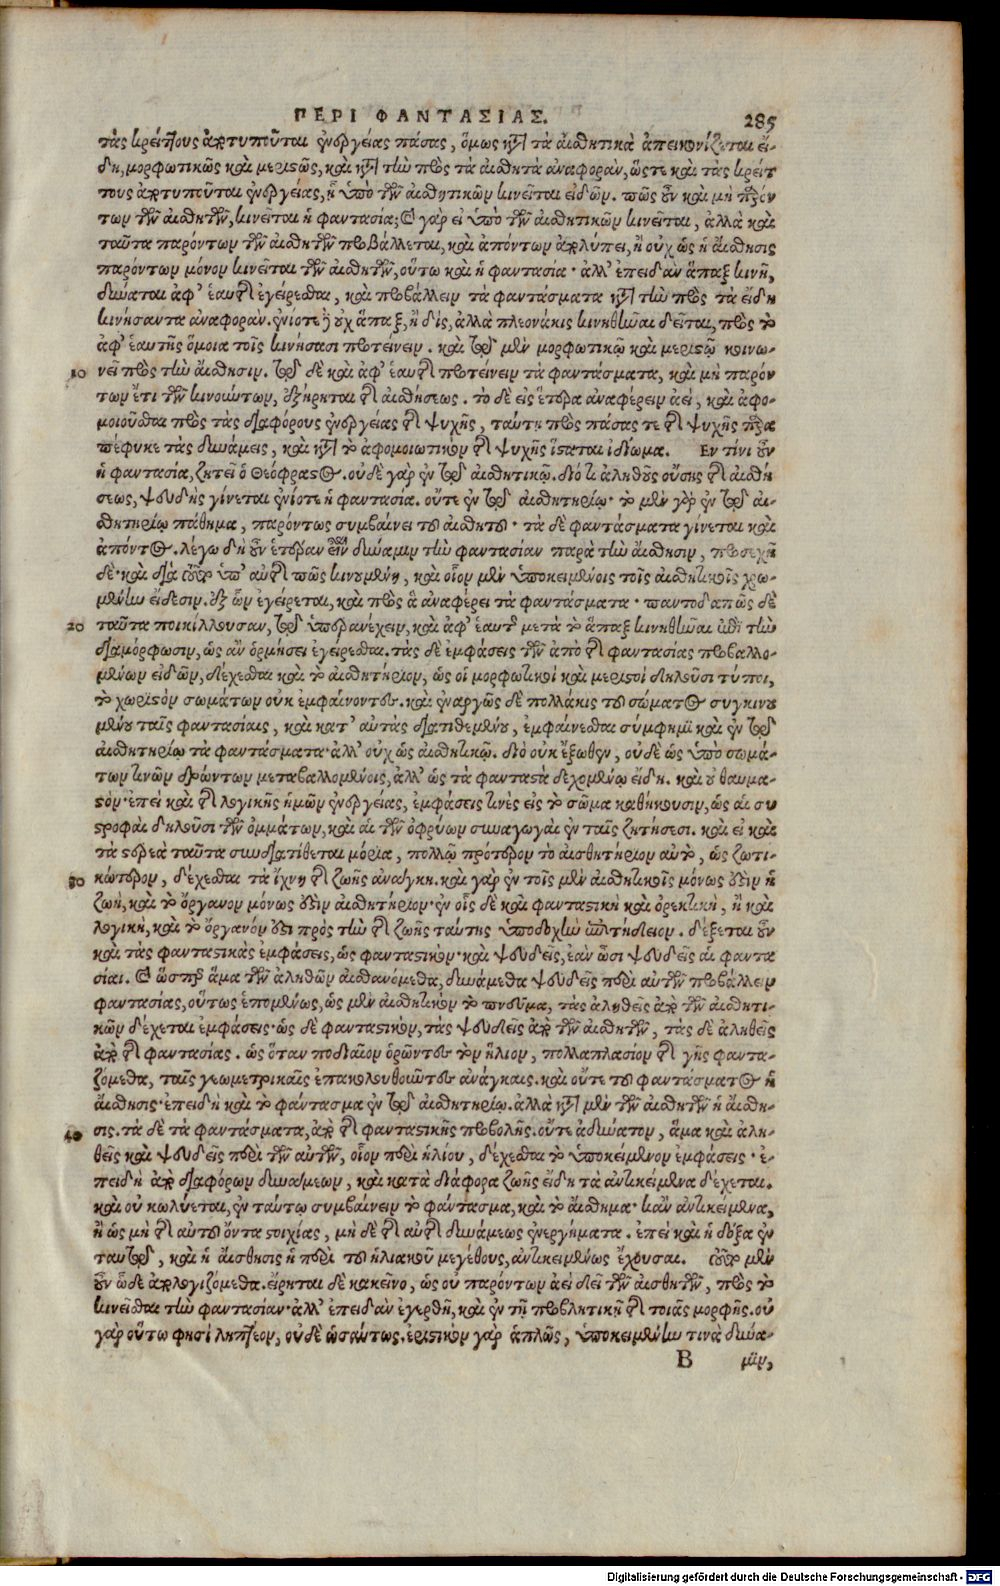 ΠΕΡΙ ΦΑΝΤΑΣΙΑΣ. 285
τὰς κρείττους ἀποτυποῦται ἐνεργείας πάσας, ὅμως κατὰ τὰ αἰσθητικὰ ἀπεικονίζεται εἴ-
δη, μορφωτικῶς καὶ μεριστῶς, καὶ κατὰ τὴν πρὸς τὰ αἰσθητὰ ἀναφοράν, ὥστε καὶ τὰς κρείτ
τους ἀποτυποῦται ἐνεργείας, ᾗ ὑπὸ τῶν αἰσθητικῶν κινεῖται εἰδῶν. πῶς οὖν καὶ μὴ παρόν
των τῶν αἰσθητῶν, κινεῖται ἡ φαντασία; καὶ γὰρ εἰ ὑπὸ τῶν αἰσθητικῶν κινεῖται, ἀλλὰ καὶ
ταῦτα παρόντων τῶν αἰσθητῶν προβάλλεται, καὶ ἀπόντων ἀπολείπει, ἢ οὐχ ὡς ἡ αἴσθησις
παρόντων μόνον κινεῖται τῶν αἰσθητῶν, οὕτω καὶ ἡ φαντασία· ἀλλ' ἐπειδὰν ἅπαξ κινηθῇ,
δύναται ἀφ' ἑαυτῆς ἐγείρεσθαι, καὶ προβάλλειν τὰ φαντάσματα κατὰ τὴν πρὸς τὰ εἴδη
κινήσαντα ἀναφοράν. ἐνίοτε δὲ οὐχ ἅπαξ, ἢ δὶς, ἀλλὰ πλεονάκις κινηθῆναι δεῖται, πρὸς τὸ
ἀφ' ἑαυτῆς ὅμοια τοῖς κινήσασι προτείνειν. καὶ τῷ μὲν μορφωτικῷ καὶ μεριστῷ κοινω-
10 νεῖ πρὸς τὴν αἴσθησιν. τῷ δὲ καὶ ἀφ' ἑαυτῆς προτείνειν τὰ φαντάσματα, καὶ μὴ παρόν
των ἔτι τῶν κινούντων, ἐξῄρηται τῆς αἰσθήσεως. τὸ δὲ εἰς ἕτερα ἀναφέρειν ἀεὶ, καὶ ἀφο-
μοιοῦσθαι πρὸς τὰς διαφόρους ἐνεργείας τῆς ψυχῆς, ταύτῃ πρὸς πάσας τε τῆς ψυχῆς παρα
πέφυκε τὰς δυνάμεις, καὶ κατὰ τὸ ἀφομοιωτικὸν τῆς ψυχῆς ἵσταται ἰδίωμα. Εν τίνι οὖν
ἡ φαντασία, ζητεῖ ὁ Θεόφραστος. οὐδὲ γὰρ ἐν τῷ αἰσθητικῷ. διότι ἀληθοῦς οὔσης τῆς αἰσθή
σεως, ψευδὴς γίνεται ἐνίοτε ἡ φαντασία. οὔτε ἐν τῷ αἰσθητηρίῳ· τὸ μὲν γὰρ ἐν τῷ αἰ-
σθητηρίῳ πάθημα, παρόντως συμβαίνει τοῦ αἰσθητοῦ· τὰ δὲ φαντάσματα γίνεται καὶ
ἀπόντος. λέγω δὴ οὖν ἑτέραν εἶναι δύναμιν τὴν φαντασίαν παρὰ τὴν αἴσθησιν, προσεχῆ
δὲ· καὶ διὰ τοῦτο ὑπ' αὐτῆς πῶς κινουμένη, καὶ οἷον μὲν ὑποκειμένοις τοῖς αἰσθητικοῖς χρω-
μένην εἴδεσιν. ἐξ ὧν ἐγείρεται, καὶ πρὸς ἃ ἀναφέρει τὰ φαντάσματα· παντοδαπῶς δὲ
20 ταῦτα ποικίλλουσαν, τῷ ὑπερανέχειν, καὶ ἀφ' ἑαυτῆς μετὰ τὸ ἅπαξ κινηθῆναι ἐπὶ τὴν
διαμόρφωσιν, ὡς ἂν ὁρμήσει ἐγείρεσθαι. τὰς δὲ ἐμφάσεις τῶν ἀπὸ τῆς φαντασίας προβαλλο-
μένων εἰδῶν, δέχεσθαι καὶ τὸ αἰσθητήριον, ὡς οἱ μορφωτικοὶ καὶ μεριστοὶ δηλοῦσι τύποι,
τὸ χωριστὸν σωμάτων οὐκ ἐμφαίνοντες. καὶ ἐναργῶς δὲ πολλάκις τοῦ σώματος συγκινου
μένου ταῖς φαντασίαις, καὶ κατ' αὐτὰς διατιθεμένου, ἐμφαίνεσθαι σύμφημι καὶ ἐν τῷ
αἰσθητηρίῳ τὰ φαντάσματα· ἀλλ' οὐχ ὡς αἰσθητικῷ. διὸ οὐκ ἔξωθεν, οὐδὲ ὡς ὑπὸ σωμά-
των τινῶν δρώντων μεταβαλλομένοις, ἀλλ' ὡς τὰ φανταστὰ δεχομένῳ εἴδη. καὶ οὐ θαυμα-
στόν· ἐπεὶ καὶ τῆς λογικῆς ἡμῶν ἐνεργείας, ἐμφάσεις τινὲς εἰς τὸ σῶμα καθήκουσιν, ὡς αἱ συ
στροφαὶ δηλοῦσι τῶν ὀμμάτων, καὶ αἱ τῶν ὀφρύων συναγωγαὶ ἐν ταῖς ζητήσεσι. καὶ εἰ καὶ
τὰ στερεὰ ταῦτα συνδιατίθεται μόρια, πολλῷ πρότερον τὸ αἰσθητήριον αὐτὸ, ὡς ζωτι-
30 κώτερον, δέχεσθαι τὰ ἴχνη τῆς ζωῆς ἀνάγκη. καὶ γὰρ ἐν τοῖς μὲν αἰσθητικοῖς μόνως ἐστὶν ἡ
ζωὴ, καὶ τὸ ὄργανον μόνως ἐστὶν αἰσθητήριον· ἐν οἷς δὲ καὶ φανταστικὴ καὶ ὀρεκτικὴ, ἢ καὶ
λογικὴ, καὶ τὸ ὄργανόν ἐστι πρὸς τὴν τῆς ζωῆς ταύτης ὑποδοχὴν ἐπιτήδειον. δέξεται οὖν
καὶ τὰς φανταστικὰς ἐμφάσεις, ὡς φανταστικὸν· καὶ ψευδεῖς, ἐὰν ὦσι ψευδεῖς αἱ φαντα
σίαι. καὶ ὥσπερ ἅμα τῶν ἀληθῶν αἰσθανόμεθα, δυνάμεθα ψευδεῖς περὶ αὐτῶν προβάλλειν
φαντασίας, οὕτως ἑπομένως, ὡς μὲν αἰσθητικὸν τὸ πνεῦμα, τὰς ἀληθεῖς ἀπὸ τῶν αἰσθητι-
κῶν δέχεται ἐμφάσεις· ὡς δὲ φανταστικὸν, τὰς ψευδεῖς ἀπὸ τῶν αἰσθητῶν, τὰς δὲ ἀληθεῖς
ἀπὸ τῆς φαντασίας. ὡς ὅταν ποδιαῖον ὁρῶντες τὸν ἥλιον, πολλαπλασίον τῆς γῆς φαντα-
ζόμεθα, ταῖς γεωμετρικαῖς ἐπακολουθοῦντες ἀνάγκαις. καὶ οὔτε τοῦ φαντάσματος ἡ
αἴσθησις· ἐπειδὴ καὶ τὸ φάντασμα ἐν τῷ αἰσθητηρίῳ. ἀλλὰ κατὰ μὲν τῶν αἰσθητῶν ἡ αἴσθη-
40 σις. τὰ δὲ τὰ φαντάσματα, ἀπὸ τῆς φανταστικῆς προβολῆς. οὔτε ἀδύνατον, ἅμα καὶ ἀλη-
θεῖς καὶ ψευδεῖς περὶ τῶν αὐτῶν, οἷον περὶ ἡλίου, δέχεσθαι τὸ ὑποκείμενον ἐμφάσεις· ἐ-
πειδὴ ἀπὸ διαφόρων δυνάμεων, καὶ κατὰ διάφορα ζωῆς εἴδη τὰ ἀντικείμενα δέχεται.
καὶ οὐ κωλύεται, ἐν ταὐτῷ συμβαίνειν τὸ φάντασμα, καὶ τὸ αἴσθημα· κἂν ἀντικείμενα,
ᾖ ὡς μὴ τῆς αὐτοῦ ὄντα στοιχίας, μὴ δὲ τῆς αὐτῆς δυνάμεως ἐνεργήματα. ἐπεὶ καὶ ἡ δόξα ἐν
ταυτῷ, καὶ ἡ αἴσθησις ἡ περὶ τοῦ ἡλιακοῦ μεγέθους, ἀντικειμένως ἔχουσαι. τοῦτο μὲν
οὖν ὧδε ἀπολογιζόμεθα. εἴρηται δὲ κἀκεῖνο, ὡς οὐ παρόντων ἀεὶ δεῖ τῶν αἰσθητῶν, πρὸς τὸ
κινεῖσθαι τὴν φαντασίαν· ἀλλ' ἐπειδὰν ἐγερθῇ, καὶ ἐν τῇ προβλητικῇ τῆς τοιᾶς μορφῆς. οὐ
γὰρ οὕτω φησὶ ληπτέον, οὐδὲ ὡσαύτως. ἐριστικὸν γὰρ ἁπλῶς, ὑποκειμένην τινὰ δύνα-
B μιν,
Digitalisierung gefördert durch die Deutsche Forschungsgemeinschaft - DFG